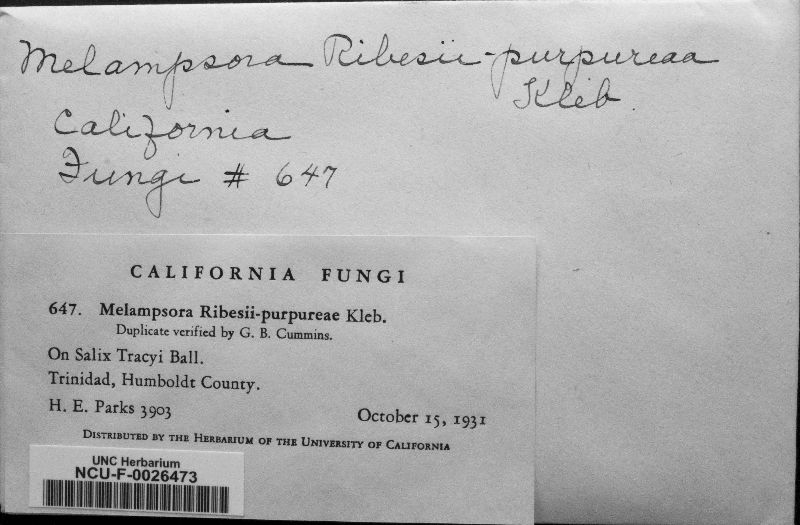 Melampsora Ribesii-purpureaa
Kleb.
California
Fungi # 647
CALIFORNIA FUNGI
647. Melampsora Ribesii-purpureae Kleb.
Duplicate verified by G. B. Cummins.
On Salix Tracyi Ball.
Trinidad, Humboldt County.
H. E. Parks 3903 October 15, 1931
DISTRIBUTED BY THE HERBARIUM OF THE UNIVERSITY OF CALIFORNIA
UNC Herbarium
NCU-F-0026473